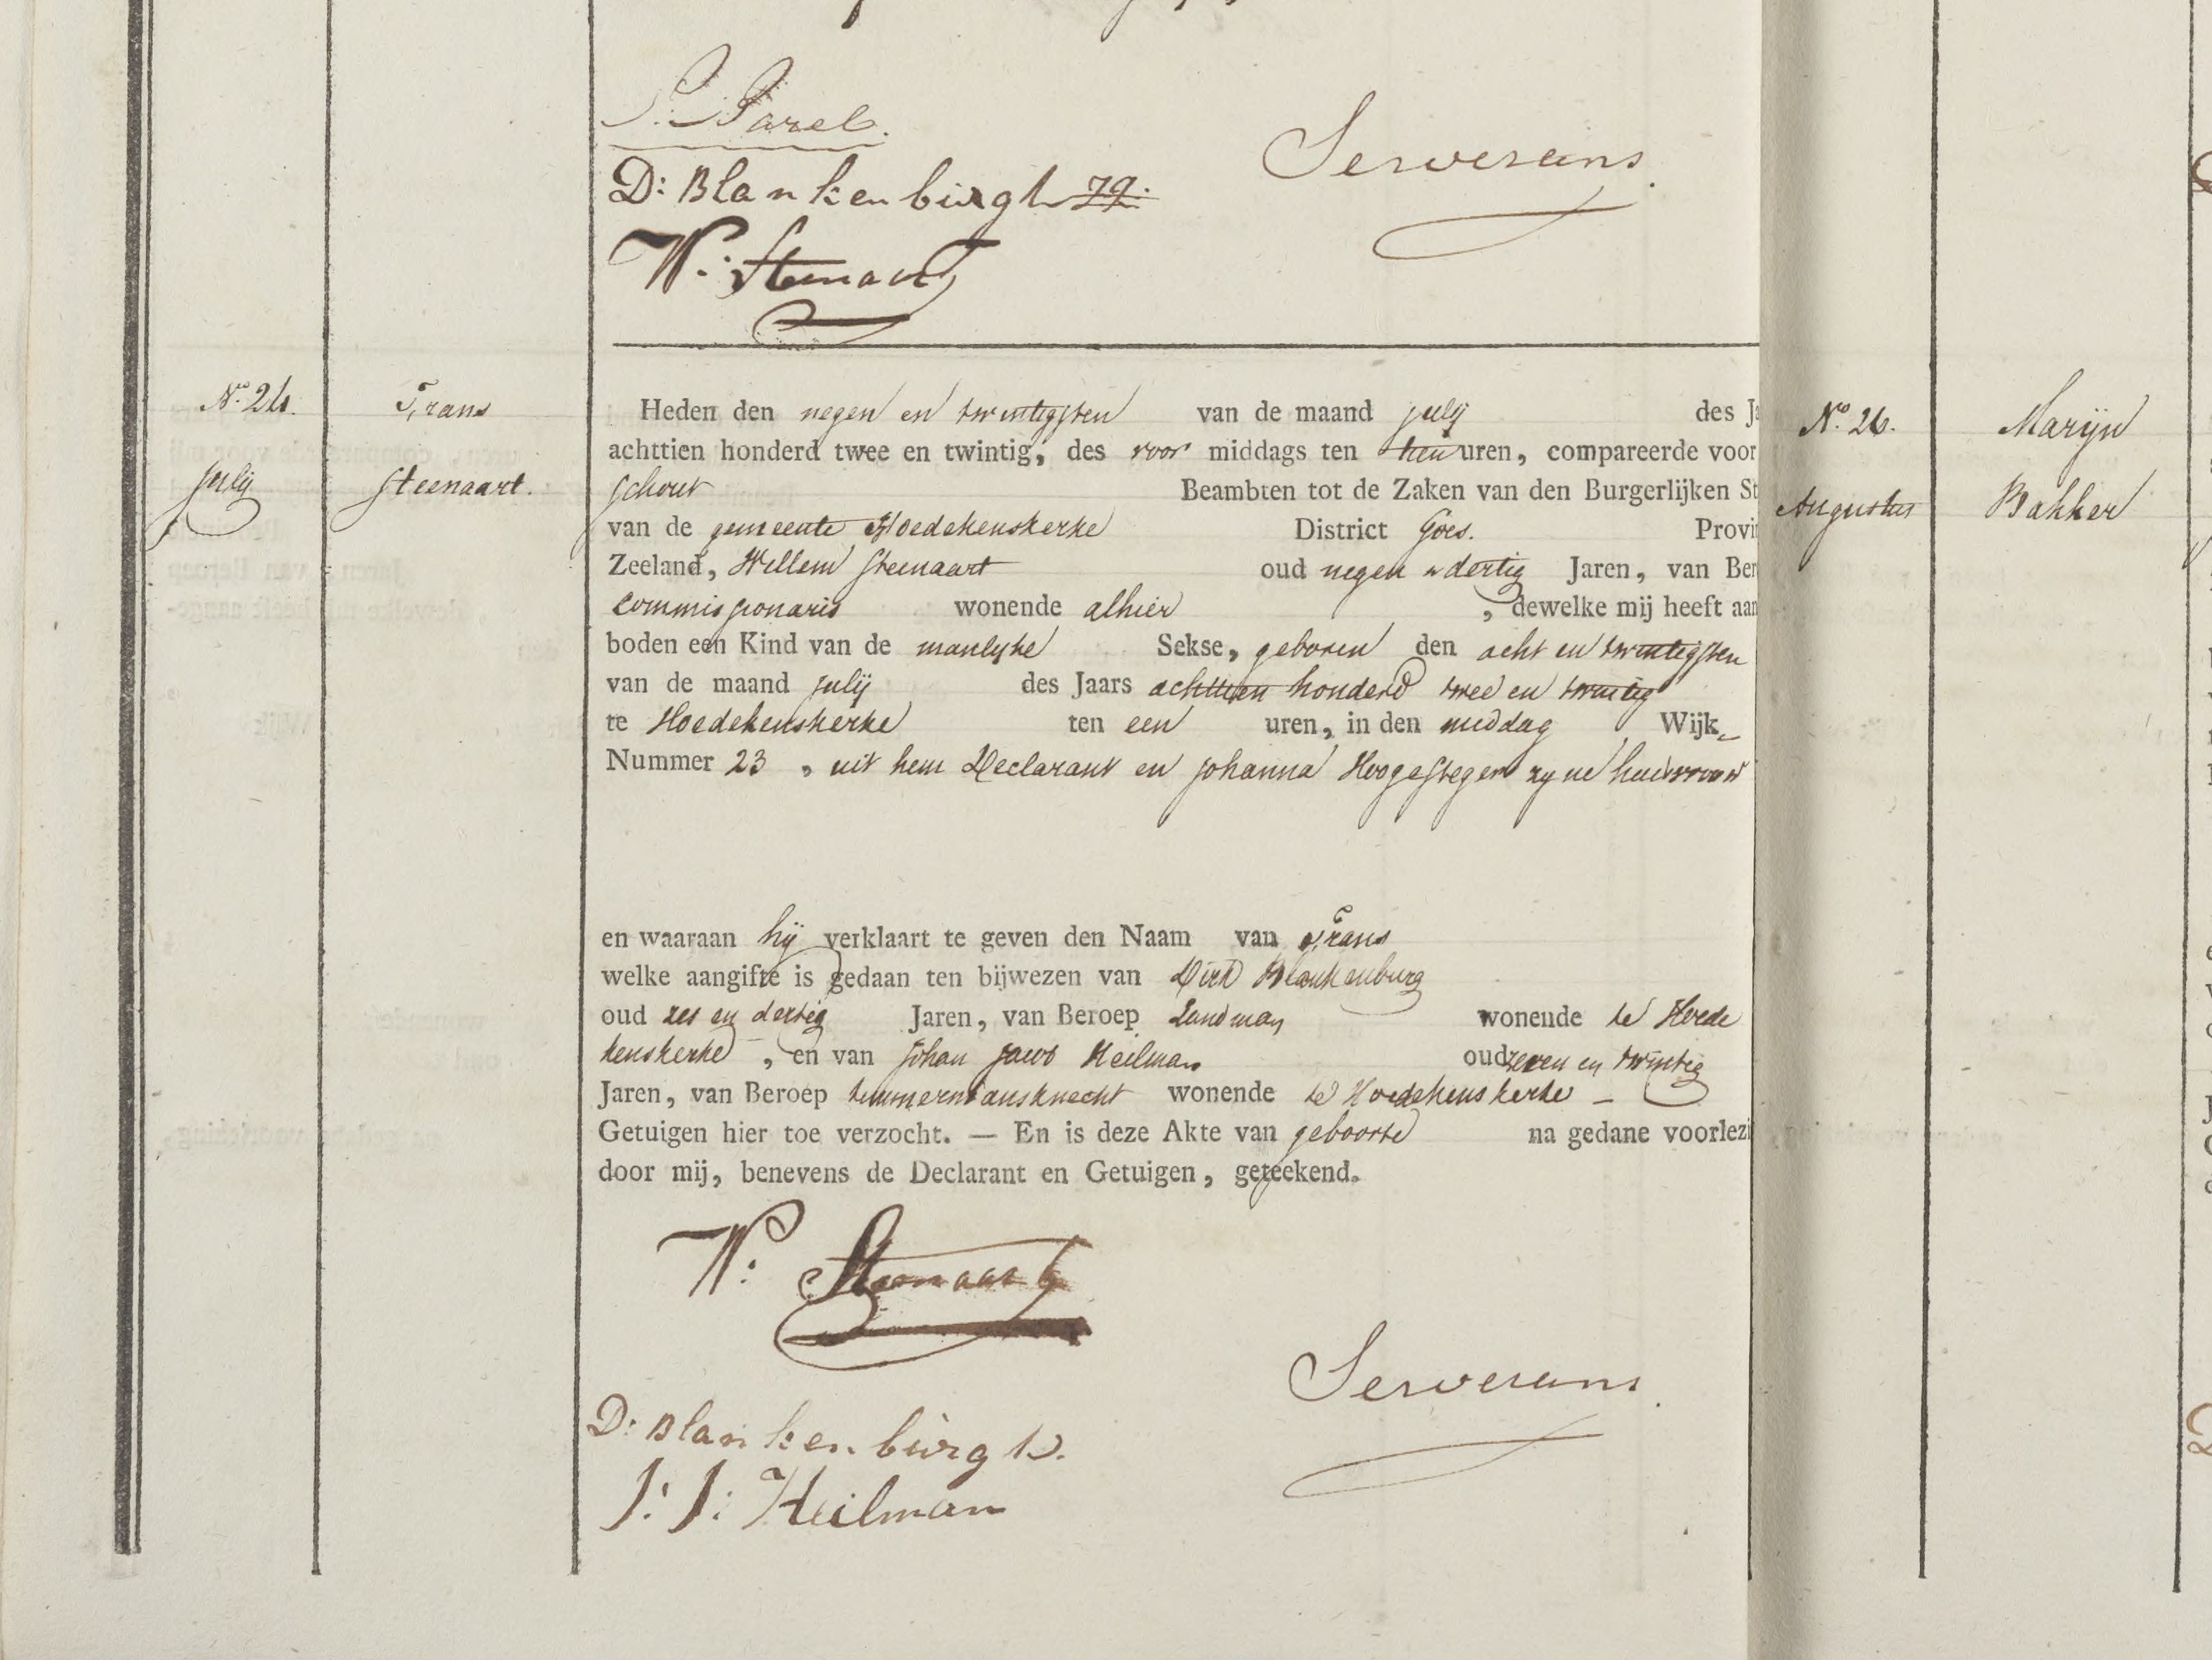 P. Parel.
D: Blankenburgh
Serverins.
W: Steenaart
No. 24.
July
Frans
Steenaart.
Heden den negen en twintigsten van de maand july des Ja
achttien honderd twee en twintig, des voor middags ten tien uren, compareerde voor
Schout Beambten tot de Zaken van den Burgerlijken St
van de gemeente Hoedekenskerke District Goes. Provin
Zeeland, Willem Steenaart oud negen en dertig Jaren, van Ber
Commissionaris wonende alhier , dewelke mij heeft aan
boden een Kind van de manlyke Sekse, geboren den acht en twintigsten
van de maand july des Jaars achttien honderd twee en twintig
te Hoedekenskerke ten een uren, in den middag Wijk
Nummer 23 , uit hem Declarant en Johanna Hoogesteger zyne huisvrouw
en waaraan hij verklaart te geven den Naam van Frans
welke aangifte is gedaan ten bijwezen van Dirk Blankenburg
oud zes en dertig Jaren, van Beroep Landman wonende te Hoede
kenskerke , en van Johan Jacob Heilman oud zeven en twintig
Jaren, van Beroep timmermansknecht wonende te Hoedekenskerke –
Getuigen hier toe verzocht. — En is deze Akte van geboorte na gedane voorlezi
door mij, benevens de Declarant en Getuigen, geteekend.
W: Steenaart
Serverins.
D: Blankenburgh.
J: J: Heilman
No. 26.
Augustus
Maryn
Bakker